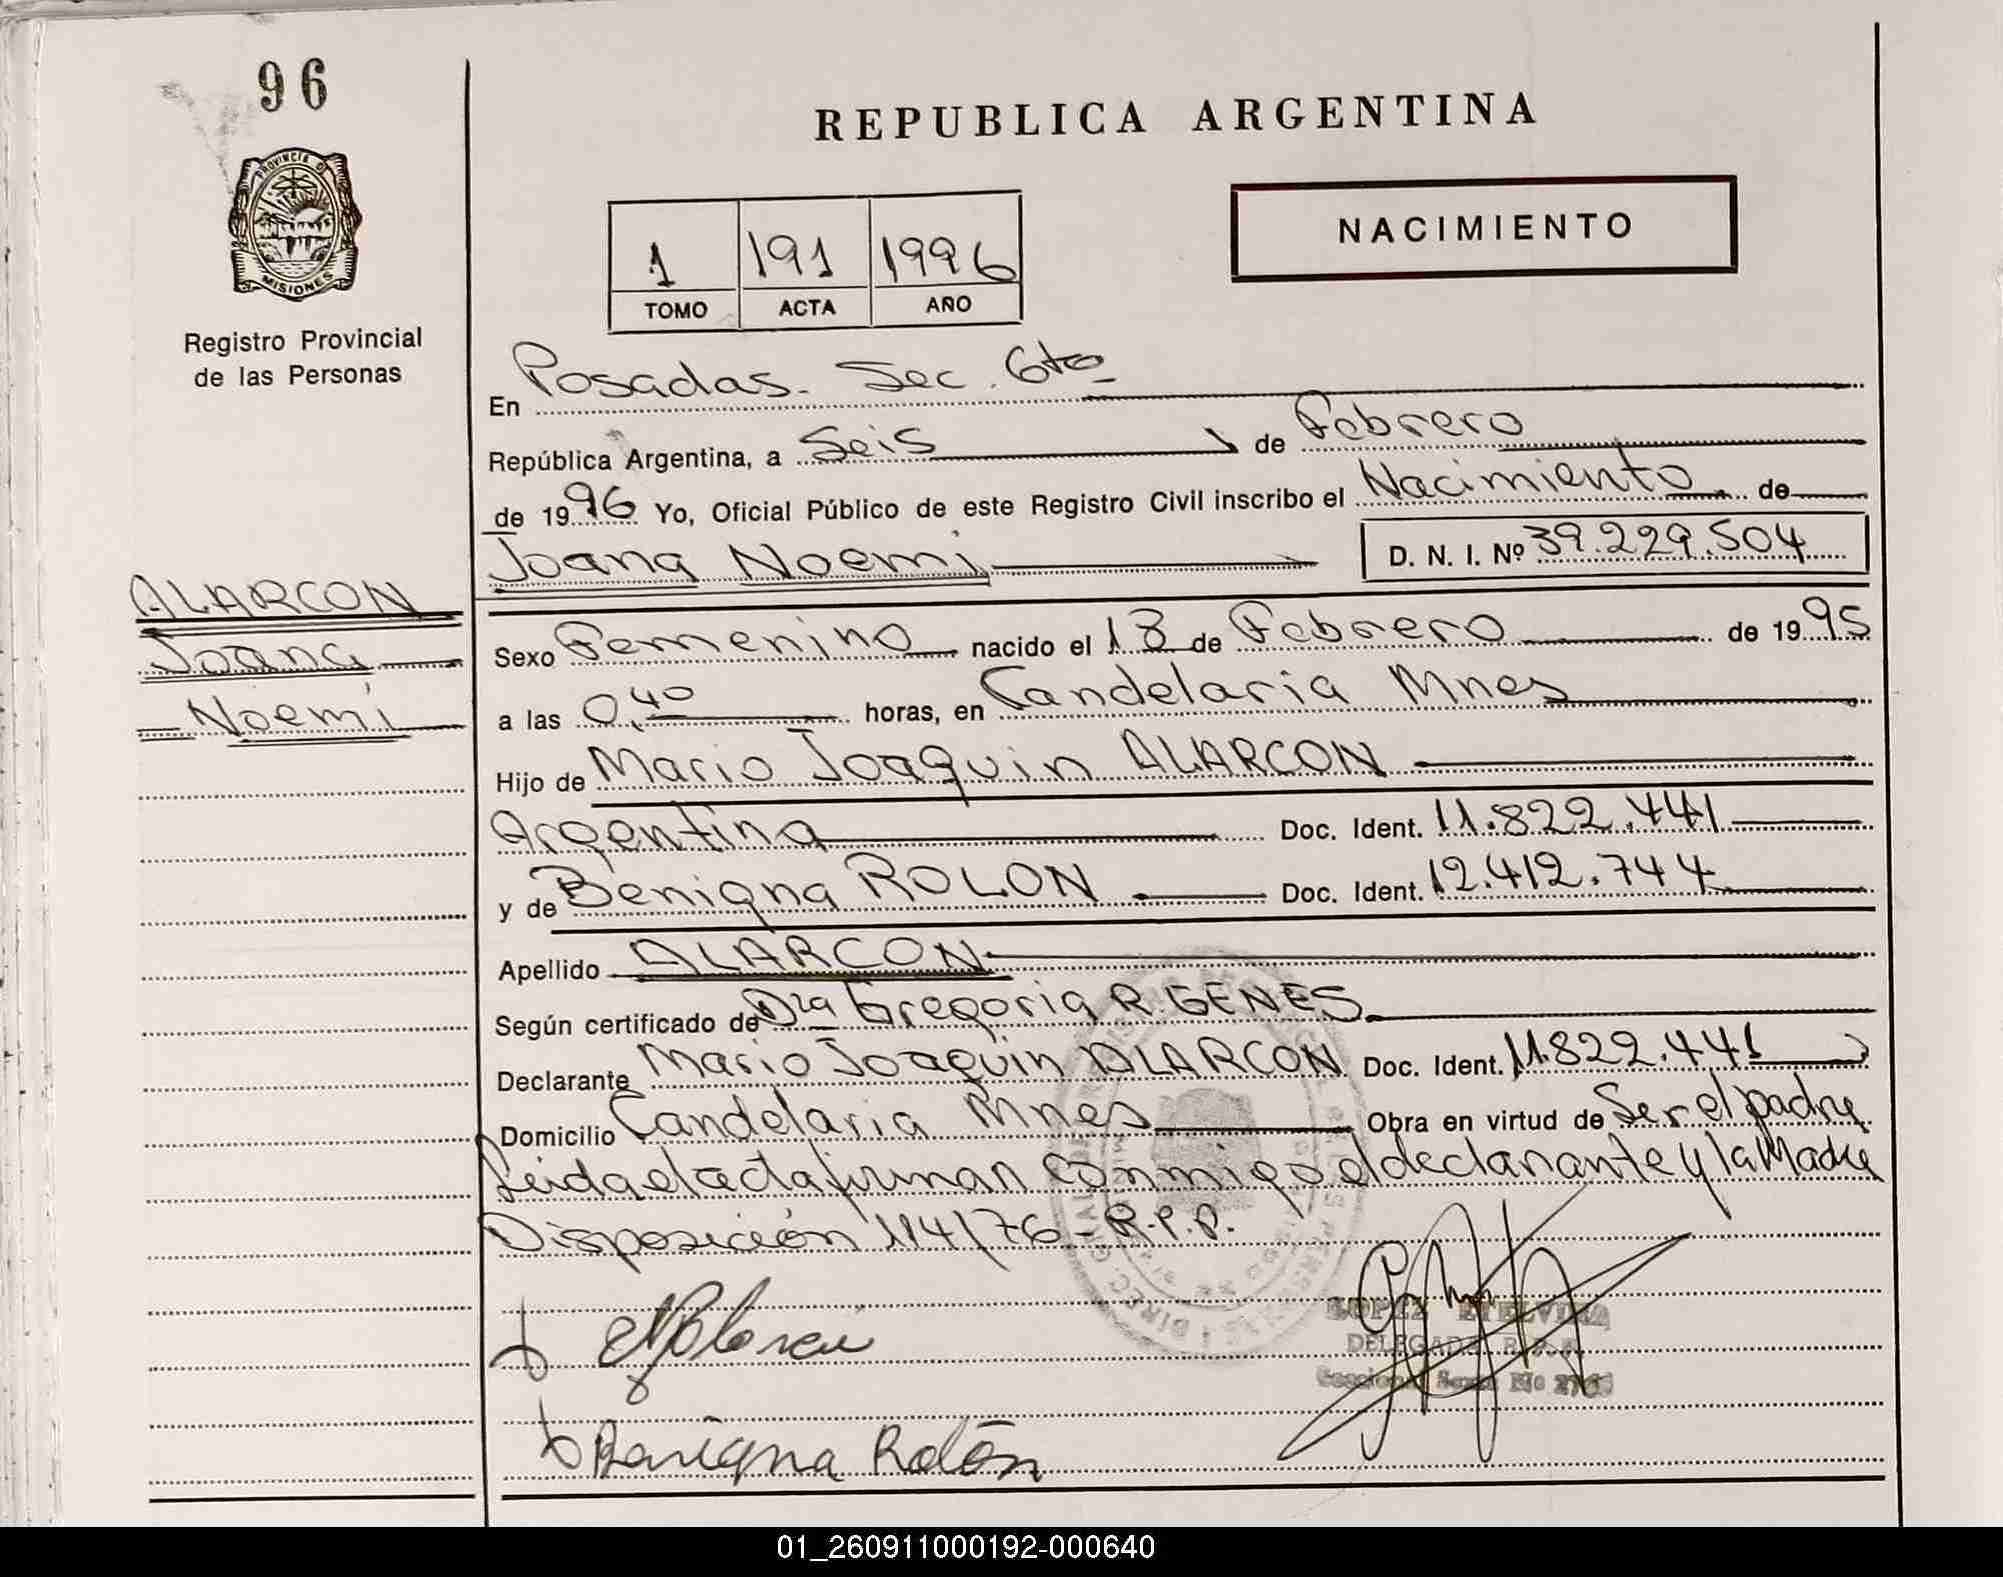 96
REPUBLICA ARGENTINA
PROVINCIA DE
MISIONES
Registro Provincial
de las Personas
NACIMIENTO
1 191 1996
TOMO ACTA AÑO
En Posadas. Sec. 6ta
República Argentina, a Seis de Febrero
de 1996 Yo, Oficial Público de este Registro Civil inscribo el Nacimiento de
Joana Noemi D. N. I. Nº 39.229.504
ALARCON
Joana
Noemi
Sexo Femenino nacido el 18 de Febrero de 1995
a las 0,40 horas, en Candelaria Mnes
Hijo de Mario Joaquin ALARCON
Argentina Doc. Ident. 11.822.441
y de Benigna ROLON Doc. Ident. 12.412.744
Apellido ALARCON
Según certificado de Dra Gregoria R. GENES
Declarante Mario Joaquin ALARCON Doc. Ident. 11.822.441
Domicilio Candelaria Mnes Obra en virtud de Ser el padre
Leida el acta firman conmigo el declarante y la Madre
Disposición 114/76 - R.P.P.
LOPEZ ETELVINA
DELEGADA R.P.P.
Benigna Rolón
01_260911000192-000640